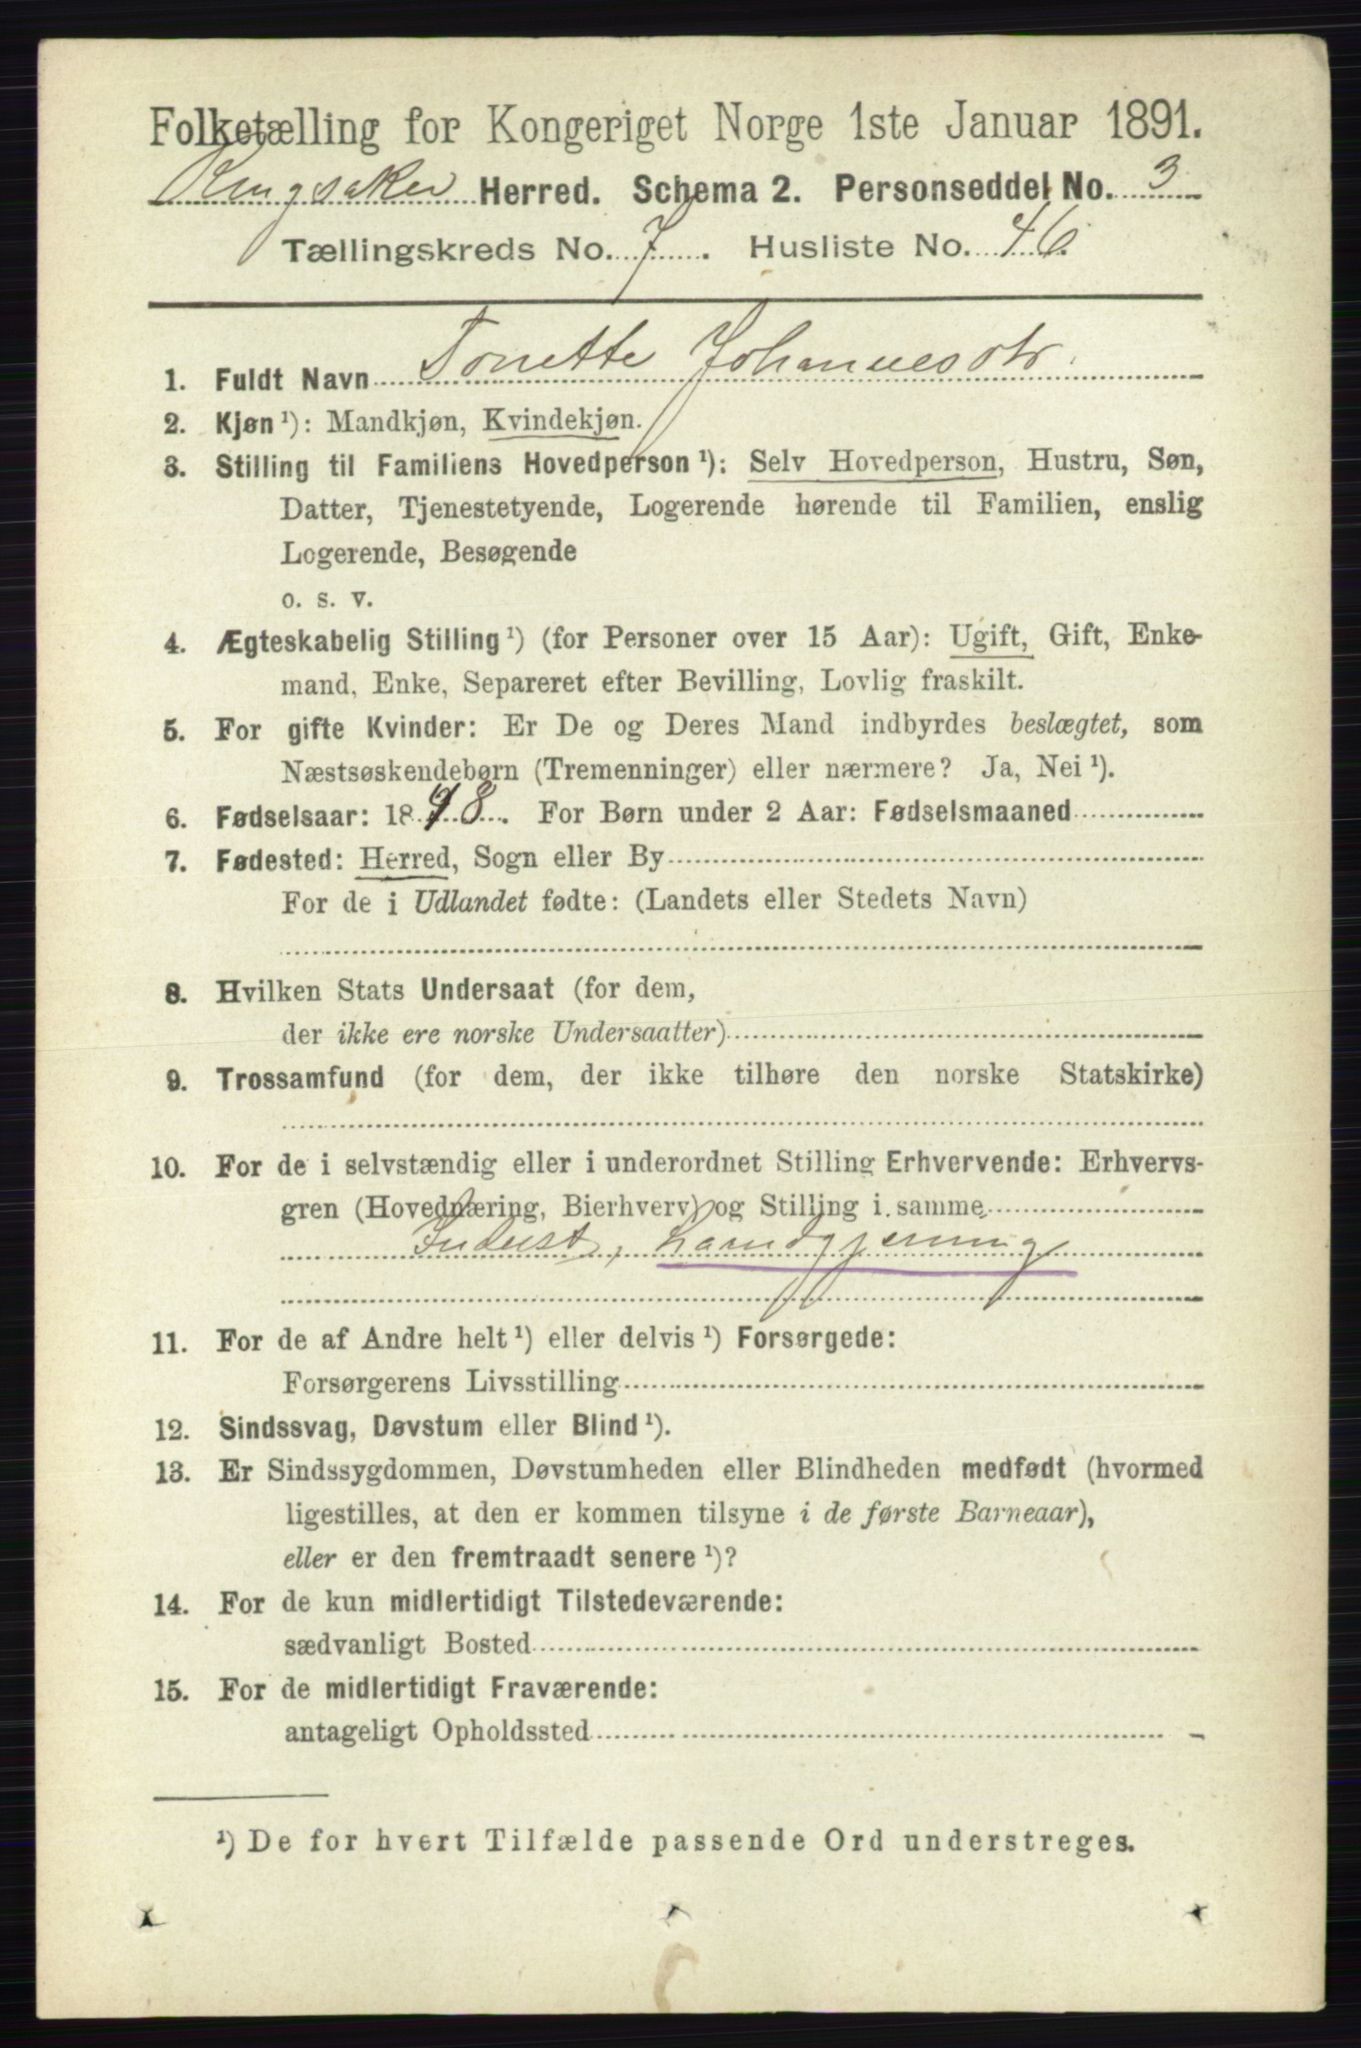 Folketælling for Kongeriget Norge 1ste Januar 1891.
Ringsaker Herred. Schema 2. Personseddel No. 3
Tællingskreds No. 7. Husliste No. 46.
1. Fuldt Navn Tonette Johannesdtr.
2. Kjøn ¹): Mandkjøn, Kvindekjøn.
3. Stilling til Familiens Hovedperson ¹): Selv Hovedperson, Hustru, Søn,
Datter, Tjenestetyende, Logerende hørende til Familien, enslig
Logerende, Besøgende
o. s. v.
4. Ægteskabelig Stilling ¹) (for Personer over 15 Aar): Ugift, Gift, Enke-
mand, Enke, Separeret efter Bevilling, Lovlig fraskilt.
5. For gifte Kvinder: Er De og Deres Mand indbyrdes beslægtet, som
Næstsøskendebørn (Tremenninger) eller nærmere? Ja, Nei ¹).
6. Fødselsaar: 18 8. For Børn under 2 Aar: Fødselsmaaned
7. Fødested: Herred, Sogn eller By
For de i Udlandet fødte: (Landets eller Stedets Navn)
8. Hvilken Stats Undersaat (for dem,
der ikke ere norske Undersaatter)
9. Trossamfund (for dem, der ikke tilhøre den norske Statskirke)
10. For de i selvstændig eller i underordnet Stilling Erhvervende: Erhvervs-
gren (Hovednæring, Bierhverv) og Stilling i samme
Inderst, Haandgjerning
11. For de af Andre helt ¹) eller delvis ¹) Forsørgede:
Forsørgerens Livsstilling
12. Sindssvag, Døvstum eller Blind ¹).
13. Er Sindssygdommen, Døvstumheden eller Blindheden medfødt (hvormed
ligestilles, at den er kommen tilsyne i de første Barneaar),
eller er den fremtraadt senere ¹)?
14. For de kun midlertidigt Tilstedeværende:
sædvanligt Bosted
15. For de midlertidigt Fraværende:
antageligt Opholdssted
¹) De for hvert Tilfælde passende Ord understreges.